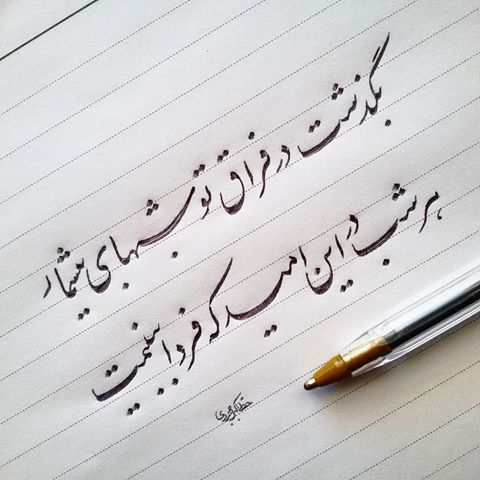 بگذشت در فراق تو شبهای بیشمار
هر شب در این امید که فردا ببینمت